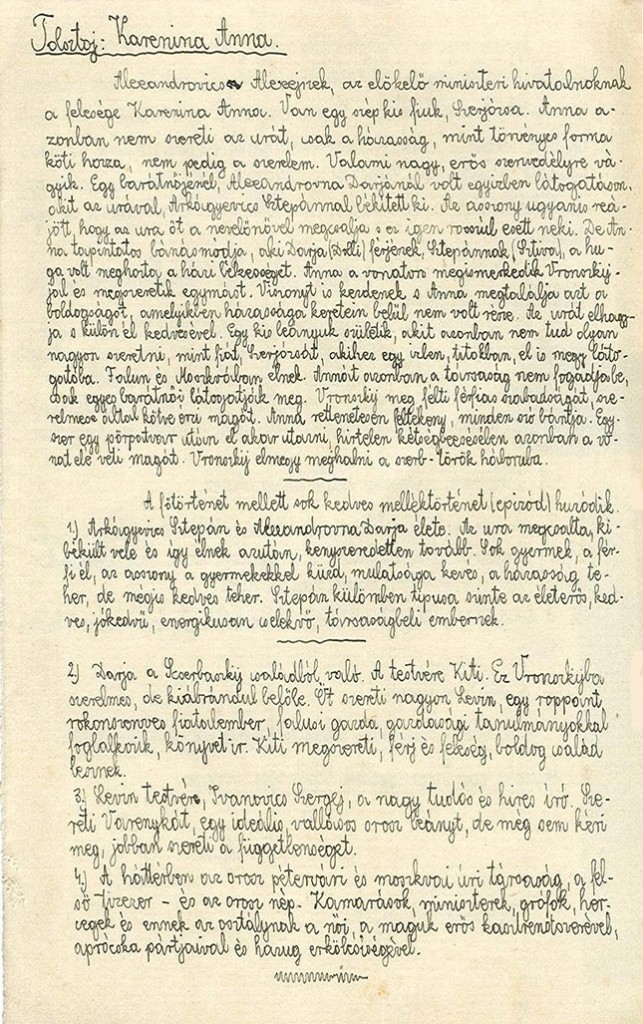 Tolsztoj: Karenina Anna.
Alexandrovics Alexejnek, az előkelő miniszteri hivatalnoknak
a felesége Karenina Anna. Van egy szép kis fiuk, Szerjózsa. Anna a-
zonban nem szereti az urát, csak a házasság, mint törvényes forma
köti hozzá, nem pedig a szerelem. Valami nagy, erős szenvedélyre vá-
gyik. Egy barátnőjénél, Alexandrovna Darjánál volt egyizben látogatáson,
akit az urával, Arkágyevics Sztepánnal békített ki. Az asszony ugyanis reá-
jött, hogy az ura őt a nevelőnővel megcsalja s ez igen rosszúl esett neki. De An-
na tapintatos bánásmódja, aki Darja (Dolli) férjének, Sztepánnak (Sztiva), a hu-
ga volt meghozta a házi békességet. Anna a vonaton megismerkedik Vronszkij-
jal és megszeretik egymást. Viszonyt is kezdenek s Anna megtalálja azt a
boldogságot, amelyikben házassága keretein belül nem volt része. Az urát elhagy-
ja s külön él kedvesével. Egy kis leányuk születik, akit azonban nem tud olyan
nagyon szeretni, mint fiát, Szerjózsát, akihez egy ízben, titokban, el is megy láto-
gatóba. Falun és Moszkvában élnek. Annát azonban a társaság nem fogadja be,
csak egyes barátnői látogatják meg. Vronszkij meg félti férfias szabadságát, sze-
relmese által kötve érzi magát. Anna rettenetesen féltékeny, minden szó bántja. Egy-
szer egy pörpatvar után el akar utazni, hirtelen kétségbeesésében azonban a vo-
nat elé veti magát. Vronszkij elmegy meghalni a szerb-török háboruba.
A főtörténet mellett sok kedves melléktörténet (epizód) huzódik.
1.) Arkágyevics Sztepán és Alexandrovna Darja élete. Az ura megcsalta, ki-
békült vele és igy élnek azután, kényszeredetten tovább. Sok gyermek, a fér-
fi él, az asszony a gyermekekkel küzd, mulatsága kevés, a házasság te-
her, de mégis kedves teher. Sztepán különben tipusa szinte az életerős, ked-
ves, jókedvü, energikusan cselekvő, társaságbeli embernek.
2.) Darja a Scserbaszkij családból való. A testvére Kiti. Ez Vronszkijba
szerelmes, de kiábrándul belőle. Őt szereti nagyon Levin, egy roppant
rokonszenves fiatalember, falusi gazda, gazdasági tanulmányokkal
foglalkozik, könyvet ir. Kiti megszereti, férj és feleség, boldog család
lesznek.
3.) Levin testvére, Ivanovics Szergej, a nagy tudós és hires író. Sze-
reti Varenykát, egy ideális, vallásos orosz leányt, de még sem kéri
meg, jobban szereti a függetlenséget.
4.) A háttérben az orosz pétervári és moszkvai úri társaság, a fel-
ső tizezer – és az orosz nép. Kamarások, miniszterek, grófok, her-
cegek és ennek az osztálynak a női, a maguk erős kasztrendszerével,
apróka pártjaival és hazug erkölcsiségével.